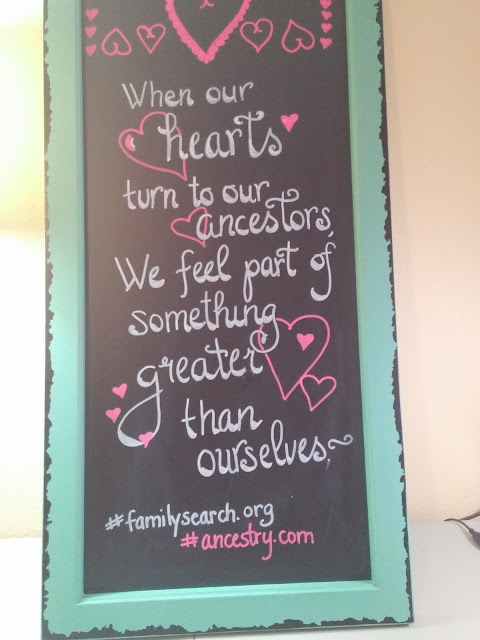 When our
hearts
turn to our
ancestors,
We feel part of
something
greater
than
ourselves,~
#familysearch.org
#ancestry.com